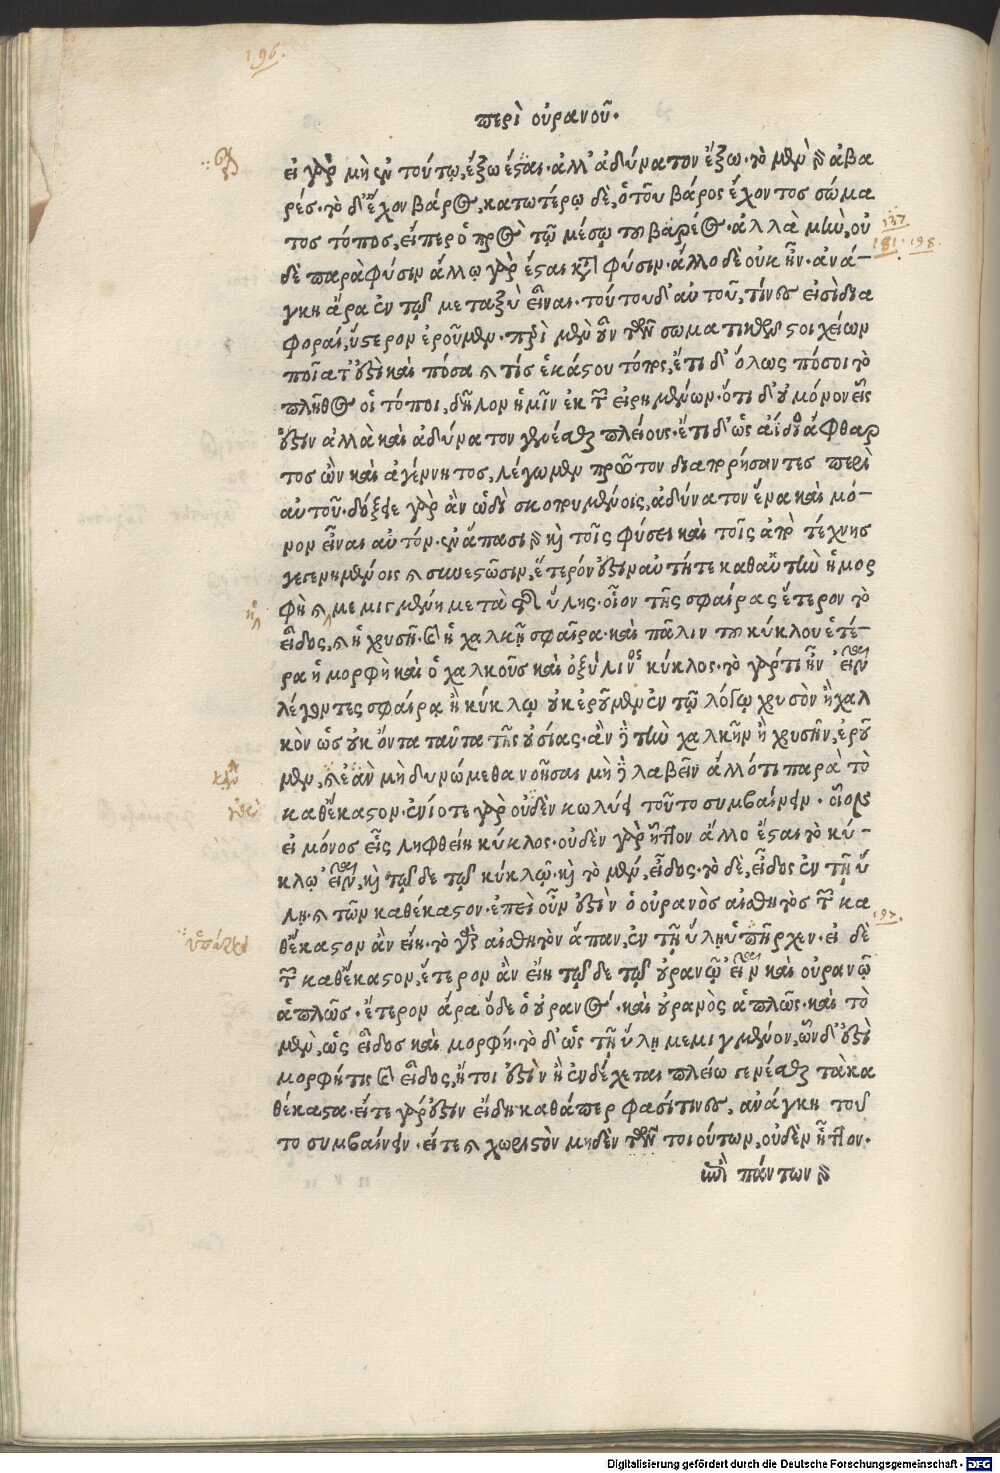 196.
περὶ οὐρανοῦ.
εἰ γὰρ μὴ ἐν τούτῳ, ἔξω ἔσται· ἀλλ' ἀδύνατον ἔξω· τὸ μὲν γὰρ ἀβα
ρές· τὸ δ' ἔχον βάρος, κατωτέρω δὲ, ὁ τοῦ βάρος ἔχοντος σώμα
τος τόπος, εἴπερ ὁ πρὸς τῷ μέσῳ τοῦ βαρέος· ἀλλὰ μὴν, οὐ
δὲ παρὰ φύσιν ἄλλῳ γὰρ ἔσται κατὰ φύσιν· ἄλλο δὲ οὐκ ἦν· ἀνά–
γκη ἄρα ἐν τῷ μεταξὺ εἶναι· τούτου δ' αὐτοῦ, τίνες εἰσὶ δια
φοραὶ, ὕστερον ἐροῦμεν· περὶ μὲν οὖν τῶν σωματικῶν στοιχείων
ποῖα τ' ἐστὶ καὶ πόσα καὶ τίς ἑκάστου τόπος, ἔτι δ' ὅλως πόσοι τὸ
πλῆθος οἱ τόποι, δῆλον ἡμῖν ἐκ τῶν εἰρημένων· ὅτι δ' οὐ μόνον εἷς
ἐστιν ἀλλὰ καὶ ἀδύνατον γενέσθαι πλείους· ἔτι δ' ὡς ἀίδιος ἄφθαρ
τος ὢν καὶ ἀγέννητος, λέγωμεν πρῶτον διαπορήσαντες περὶ
αὐτοῦ· δόξειε γὰρ ἂν ὡδὶ σκοπουμένοις, ἀδύνατον ἕνα καὶ μό–
νον εἶναι αὐτόν· ἐν ἅπασι γὰρ καὶ τοῖς φύσει καὶ τοῖς ἀπὸ τέχνης
γεγενημένοις καὶ συνεστῶσιν, ἕτερόν ἐστιν αὐτή τε καθ' αὑτὴν ἡ μορ
φὴ καὶ μεμιγμένη μετὰ τῆς ὕλης· οἷον τῆς σφαίρας ἕτερον τὸ
εἶδος, καὶ ἡ χρυσῆ· καὶ ἡ χαλκῆ σφαῖρα· καὶ πάλιν τοῦ κύκλου ἑτέ–
ρα ἡ μορφὴ καὶ ὁ χαλκοῦς καὶ ὁ ξύλινος κύκλος· τὸ γὰρ τί ἦν εἶναι
λέγοντες σφαίρᾳ ἢ κύκλῳ οὐκ ἐροῦμεν ἐν τῷ λόγῳ χρυσὸν ἢ χαλ
κὸν ὡς οὐκ ὄντα ταῦτα τῆς οὐσίας· ἂν δὲ τὴν χαλκῆν ἢ χρυσῆν, ἐροῦ
μεν, καὶ ἐὰν μὴ δυνώμεθα νοῆσαι μηδὲ λαβεῖν ἄλλό τι παρὰ τὸ
καθέκαστον· ἐνίοτε γὰρ οὐδὲν κωλύει τοῦτο συμβαίνειν· οἷον
εἰ μόνος εἷς ληφθείη κύκλος· οὐδὲν γὰρ ἧττον ἄλλο ἔσται τὸ κύ–
κλῳ εἶναι, καὶ τῷδε τῷ κύκλῳ· καὶ τὸ μέν, εἶδος· τὸ δὲ, εἶδος ἐν τῇ ὕ
λῃ· καὶ τῶν καθέκαστον· ἐπεὶ οὖν ἐστὶν ὁ οὐρανὸς αἰσθητὸς τῶν κα
θέκαστον ἂν εἴη· τὸ γὰρ αἰσθητὸν ἅπαν, ἐν τῇ ὕλῃ ὑπῆρχεν· εἰ δὲ
τῶν καθέκαστον, ἕτερον ἂν εἴη τῷδε τῷ οὐρανῷ εἶναι καὶ οὐρανῷ
ἁπλῶς· ἕτερον ἄρα ὅδε ὁ οὐρανός· καὶ οὐρανὸς ἁπλῶς· καὶ τὸ
μὲν, ὡς εἶδος καὶ μορφή· τὸ δ' ὡς τῇ ὕλῃ μεμιγμένον, ὧν δ' ἐστὶ
μορφή τις καὶ εἶδος, ἤτοι ἐστὶν ἢ ἐνδέχεται πλείω γενέσθαι τὰ κα
θέκαστα· εἴτε γάρ ἐστιν εἴδη καθάπερ φασί τινες, ἀνάγκη τοῦ
το συμβαίνειν· εἴτε καὶ χωριστὸν μηδὲν τῶν τοιούτων, οὐδὲν ἧττον·
ἐπὶ πάντων γὰρ
137
181· 198.
197.
Digitalisierung gefördert durch die Deutsche Forschungsgemeinschaft - DFG